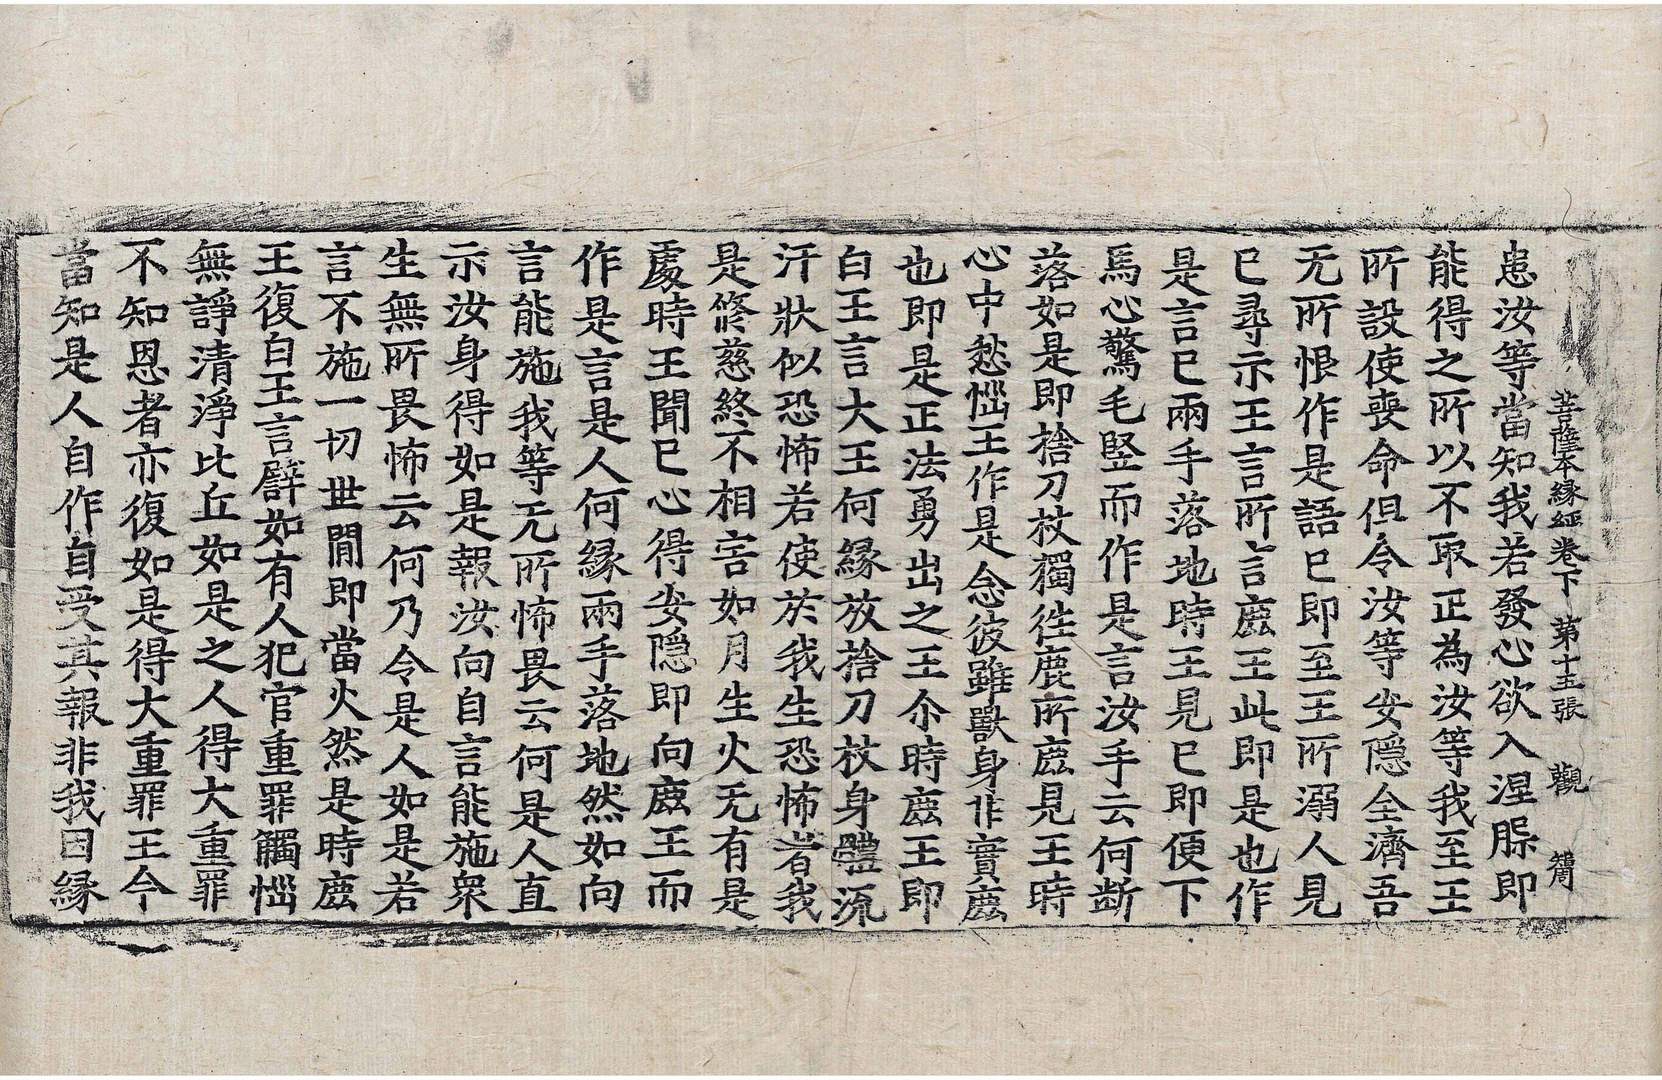 菩薩本縁經卷下 第十五張 觀 簡
恚汝等當知我若發心欲入涅槃即
能得之所以不取正為汝等我至王
所設使喪命但令汝等安隱全濟吾
无所恨作是語已即至王所溺人見
已尋示王言所言鹿王此即是也作
是言已兩手落地時王見已即便下
馬心驚毛竪而作是言汝手云何斷
落如是即捨刀杖獨往鹿所鹿見王時
心中愁惱王作是念彼雖獸身非實鹿
也即是正法勇出之王尒時鹿王即
白王言大王何縁放捨刀杖身體流
汗狀似恐怖若使於我生恐怖者我
是脩慈終不相害如月生火无有是
處時王聞已心得安隱即向鹿王而
作是言是人何縁兩手落地然如向
言能施我等无所怖畏云何是人直
示汝身得如是報汝向自言能施衆
生無所畏怖云何乃令是人如是若
言不施一切世間即當火然是時鹿
王復白王言譬如有人犯官重罪觸惱
無諍清淨比丘如是之人得大重罪
不知恩者亦復如是得大重罪王今
當知是人自作自受其報非我因縁